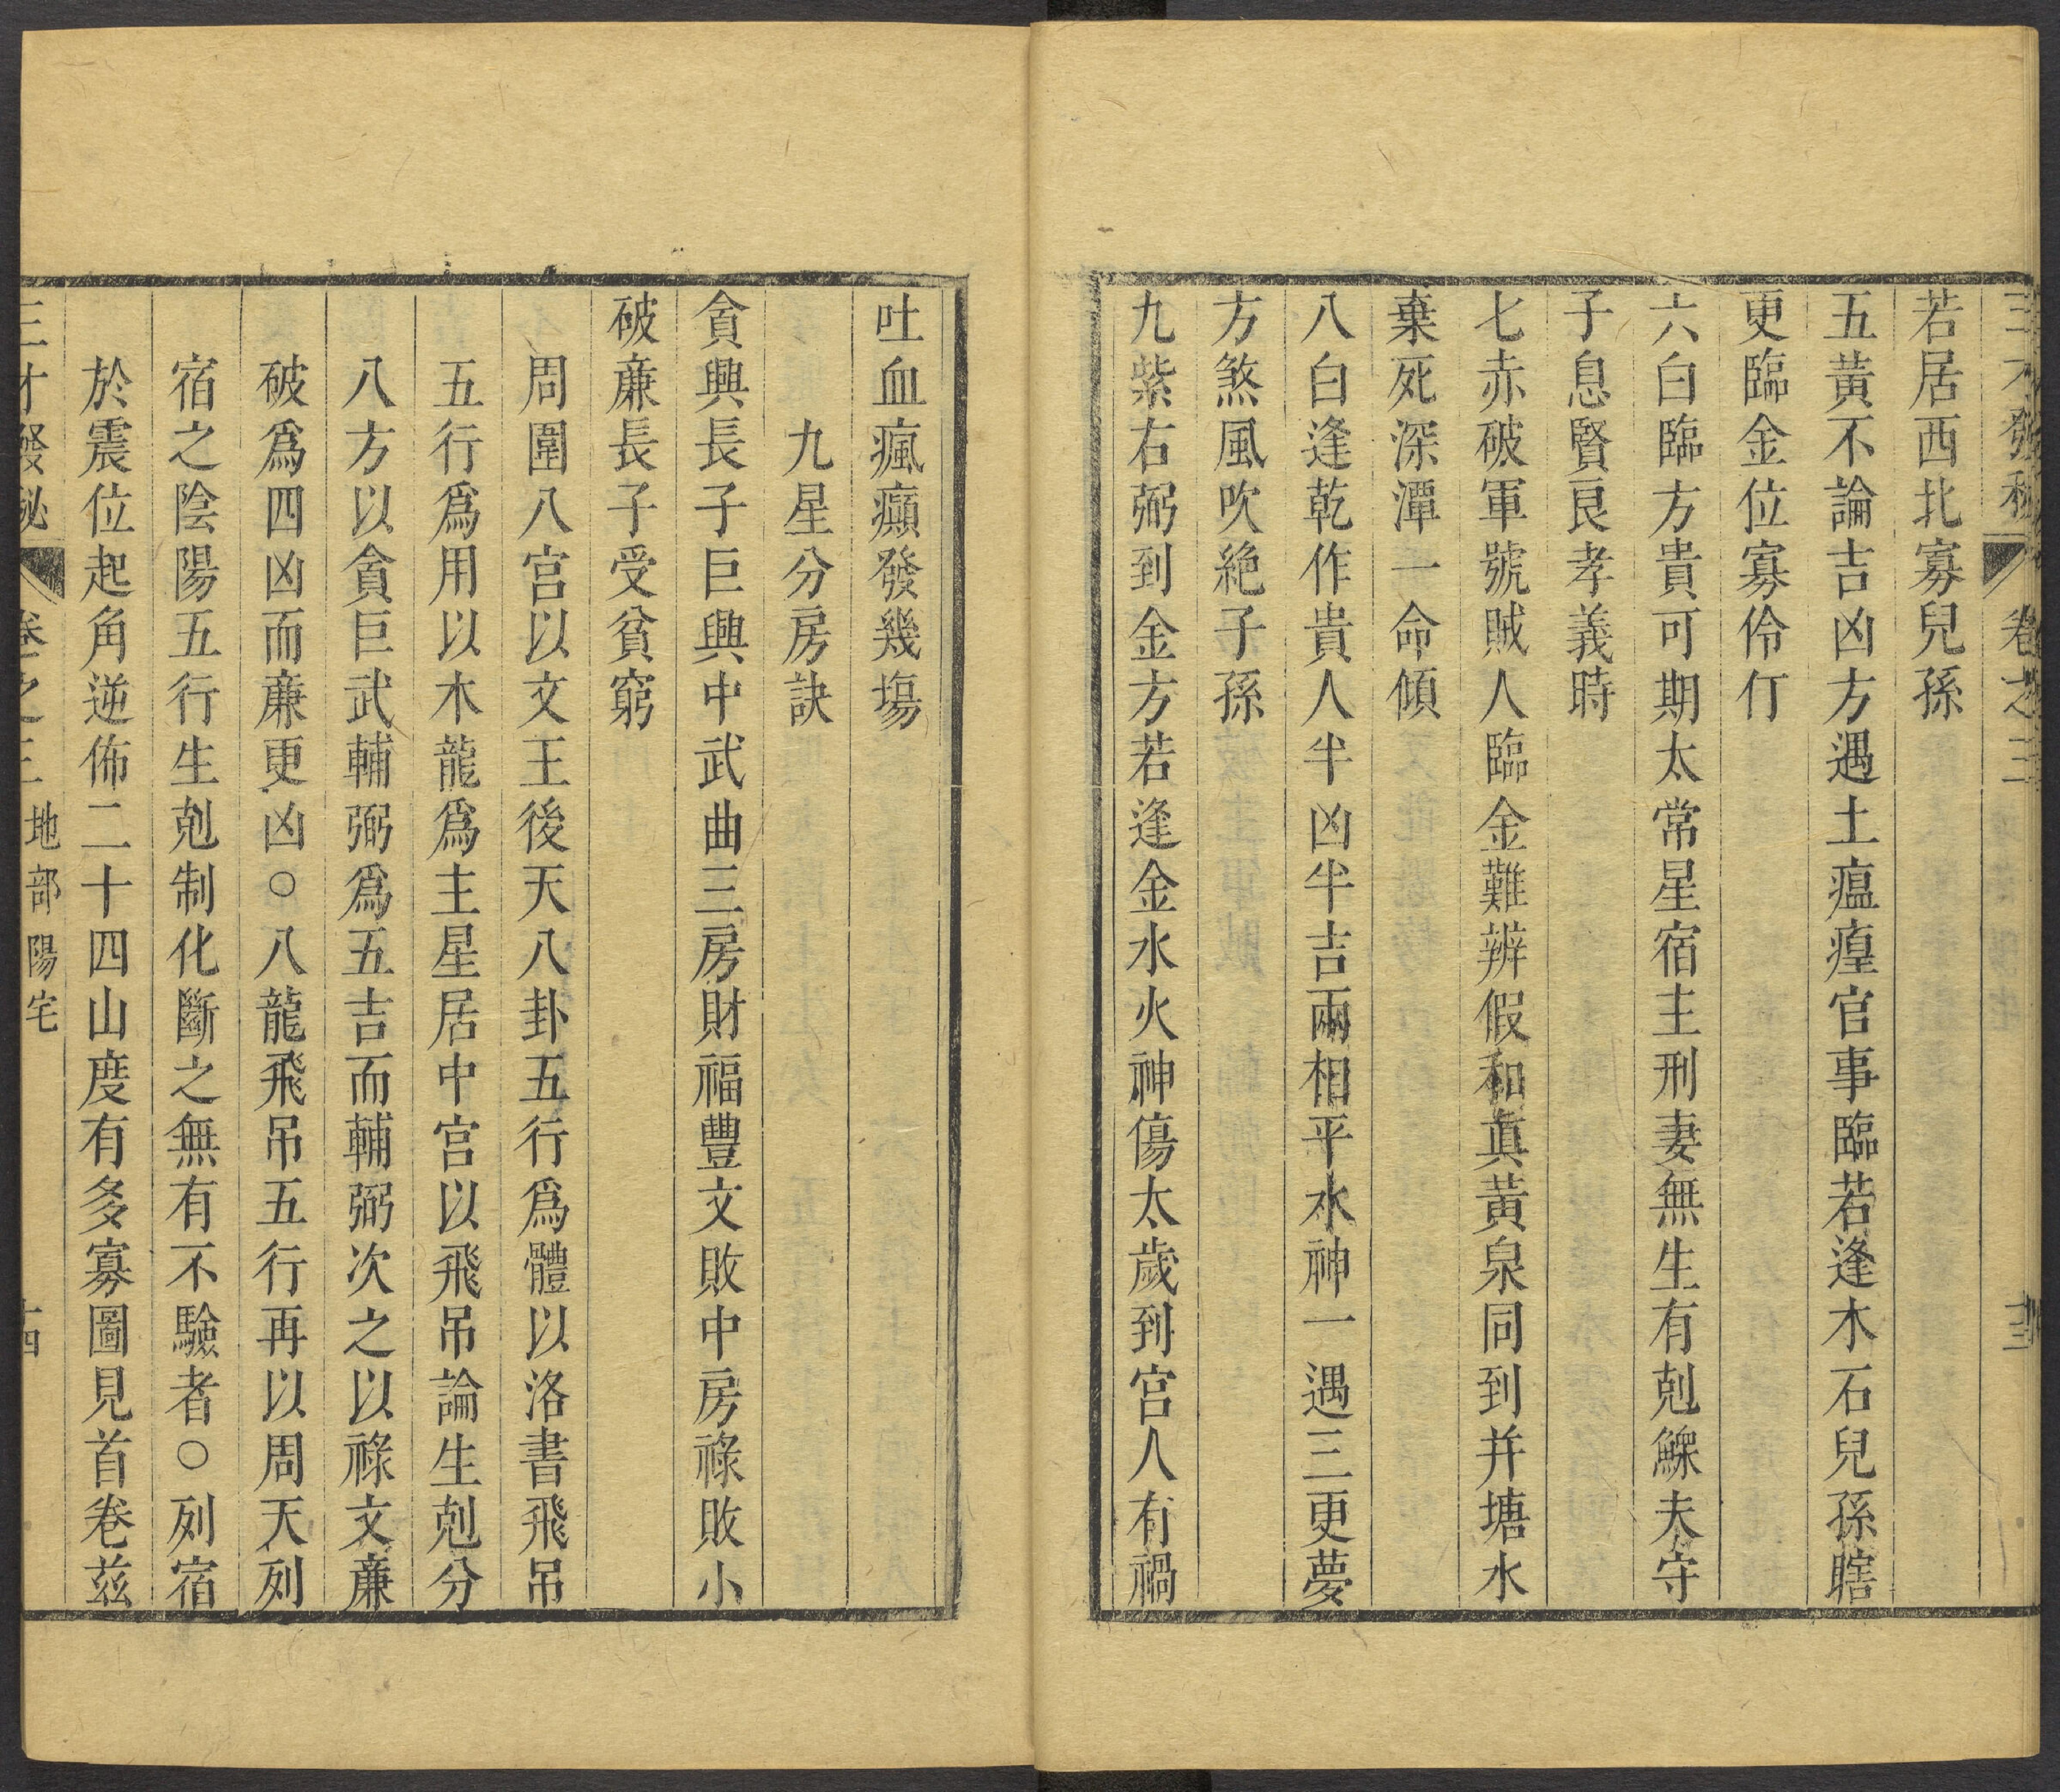 三才發秘 卷之三 十三
若居西北寡兒孫
五黃不論吉凶方遇土瘟瘟官事臨若逢木石兒孫瞎
更臨金位寡伶仃
六白臨方貴可期太常星宿主刑妻無生有剋鰥夫守
子息賢良孝義時
七赤破軍號賊人臨金難辨假和眞黃泉同到井塘水
棄死深潭一命傾
八白逢乾作貴人半凶半吉兩相平水神一遇三更夢
方煞風吹絶子孫
九紫右弼到金方若逢金水火神傷太歲到宮人有禍
吐血瘋癲發幾塲
九星分房訣
貪興長子巨興中武曲三房財福豐文敗中房祿敗小
破亷長子受貧窮
周圍八宮以文王後天八卦五行爲體以洛書飛吊
五行爲用以木龍爲主星居中宮以飛吊論生剋分
八方以貪巨武輔弼爲五吉而輔弼次之以祿文亷
破爲四凶而亷更凶○八龍飛吊五行再以周天列
宿之陰陽五行生剋制化斷之無有不驗者○列宿
於震位起角逆佈二十四山度有多寡圖見首卷茲
三才發秘 卷之三 地部 陽宅 十四